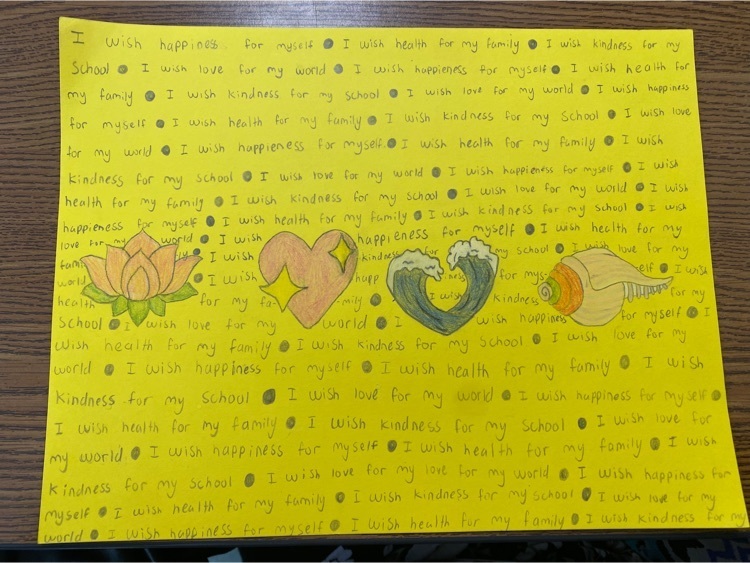 I wish happiness for myself ● I wish health for my family ● I wish kindness for my
School ● I wish love for my world ● I wish happieness for myself ● I wish health for
my family ● I wish kindness for my school ● I wish love for my world ● I wish happiness
for myself ● I wish health for my family ● I wish kindness for my school ● I wish love
for my world ● I wish happieness for myself ● I wish health for my family ● I wish
kindness for my school ● I wish love for my world ● I wish happieness for myself ● I wish
health for my family ● I wish kindness for my school ● I wish love for my world ● I wish
happieness for myself ● I wish health for my family ● I wish kindness for my school ● I wish
love for my world ● I wish happieness for myself ● I wish health for my
family ● I wish kindness for my school ● I wish love for my
I wish happ for mys elf ● I wish
health for my fa mily ● I wish kindness for my
School ● I wish love for my world ● I wish happiness for myself ● I
wish health for my family ● I wish kindness for my school ● I wish love for my
world ● I wish happiness for myself ● I wish health for my family ● I wish
kindness for my school ● I wish love for my world ● I wish happiness for myself ●
I wish health for my family ● I wish kindness for my school ● I wish love for
my world ● I wish happiness for myself ● I wish health for my family ● I wish
kindness for my school ● I wish love for my love for my world ● I wish happiness for
myself ● I wish health for my family ● I wish kindness for my school ● I wish love for my
world ● I wish happiness for myself ● I wish health for my family ● I wish kindness for my